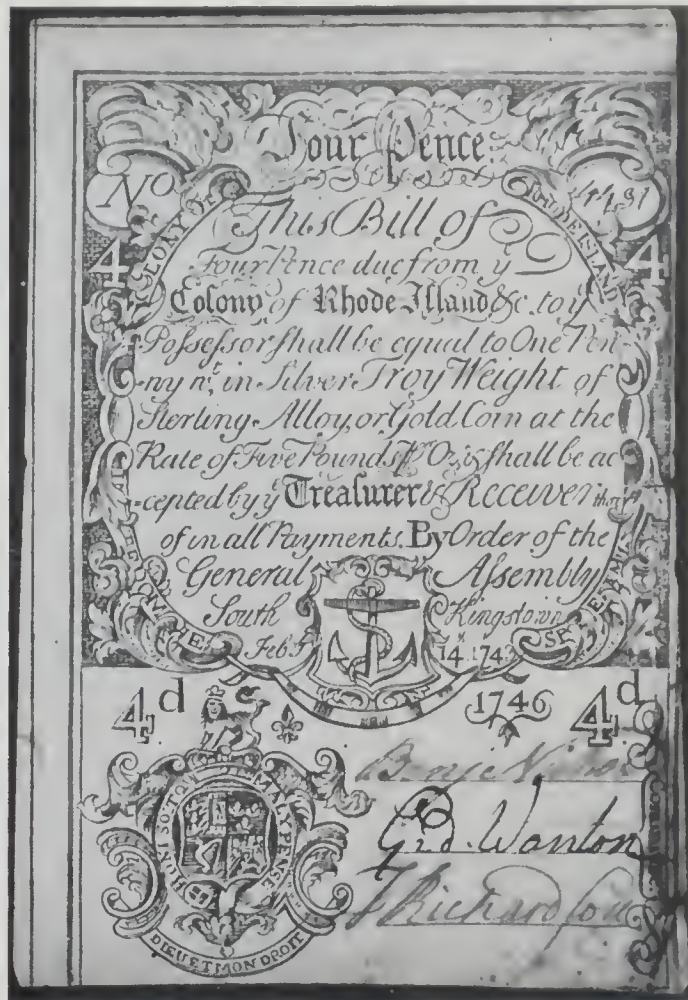 Four Pence
No 4431
COLONY OF RHODE ISLAND
4 4
This Bill of
Four Pence due from ye
Colony of Rhode Iſland &c. to ye
Poſseſsor ſhall be equal to One Pen
ny wt. in Silver Troy Weight of
Sterling Alloy, or Gold Coin at the
Rate of Five Pounds pr Oz. & ſhall be ac
cepted by ye Treaſurer & Receiver there
of in all Payments. By Order of the
General Aſsembly
South Kingstown
Feb. 14. 1743
4d 1746 4d
HONI SOIT QUI MAL Y PENSE
Gid. Wanton
T Richardſon
DIEU ET MON DROIT